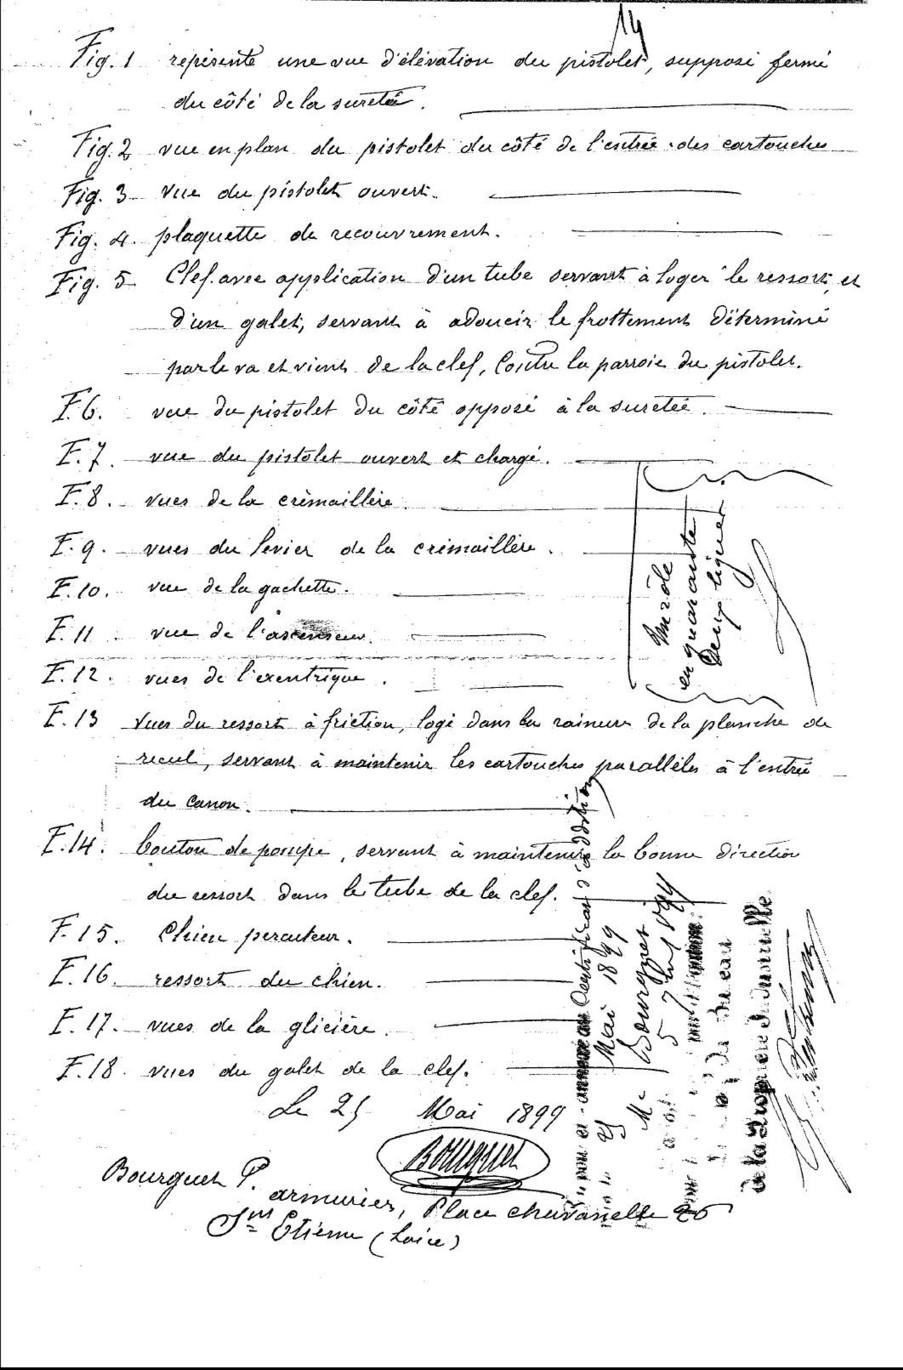 14
Fig. 1 représente une vue d'élévation du pistolet, supposé fermé
du côté de la suretée.
Fig. 2 vue en plan du pistolet du côté de l'entrée des cartouches
Fig. 3 vue du pistolet ouvert.
Fig. 4. plaquette de recouvrement.
Fig. 5 Clef avec application d'un tube servant à loger le ressort, et
d'un galet, servant à adoucir le frottement déterminé
par le va et vient de la clef, contre la parroie du pistolet.
F.6. vue du pistolet du côté opposé à la suretée.
F.7. vue du pistolet ouvert et chargé.
F.8. vues de la crèmaillère.
F.9. vues du levier de la crèmaillère.
F.10. vue de la gachette.
F.11 vue de l'ascenseur.
F.12. vues de l'exentrique.
F.13 Vues du ressort à friction, logé dans la rainure de la planche de
recul, servant à maintenir les cartouches parallèles à l'entrée
du canon.
F.14. bouton de pompe, servant à maintenir la bonne direction
du ressort dans le tube de la clef.
F.15. Chien percuteur.
F.16. ressort du chien.
F.17. vues de la glicière.
F.18. vues du galet de la clef.
Le 25 Mai 1899
Bourguet
Bourguet P.
armurier, Place chavanelle 26
St Etiénne (Loire)
en quarante
Deux lignes.
d'addition
Mai 1899
Bourguet
du Bureau
de la Propriété Industrielle